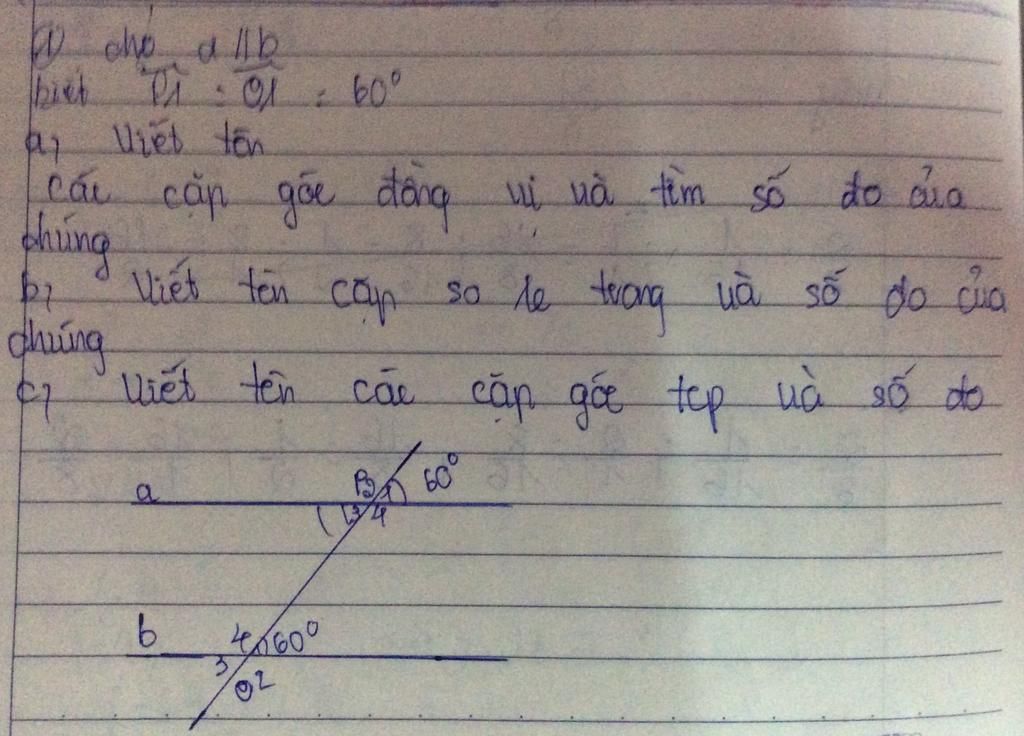 cho a // b
biết P1 = O1 = 60°
a, Viết tên
các cặp góc đồng vị và tìm số đo của
chúng
b, Viết tên cặp so le trong và số đo của
chúng
c, Viết tên các cặp góc tcp và số đo
a P 1 60°
3 4
b 4 60°
3 O 2